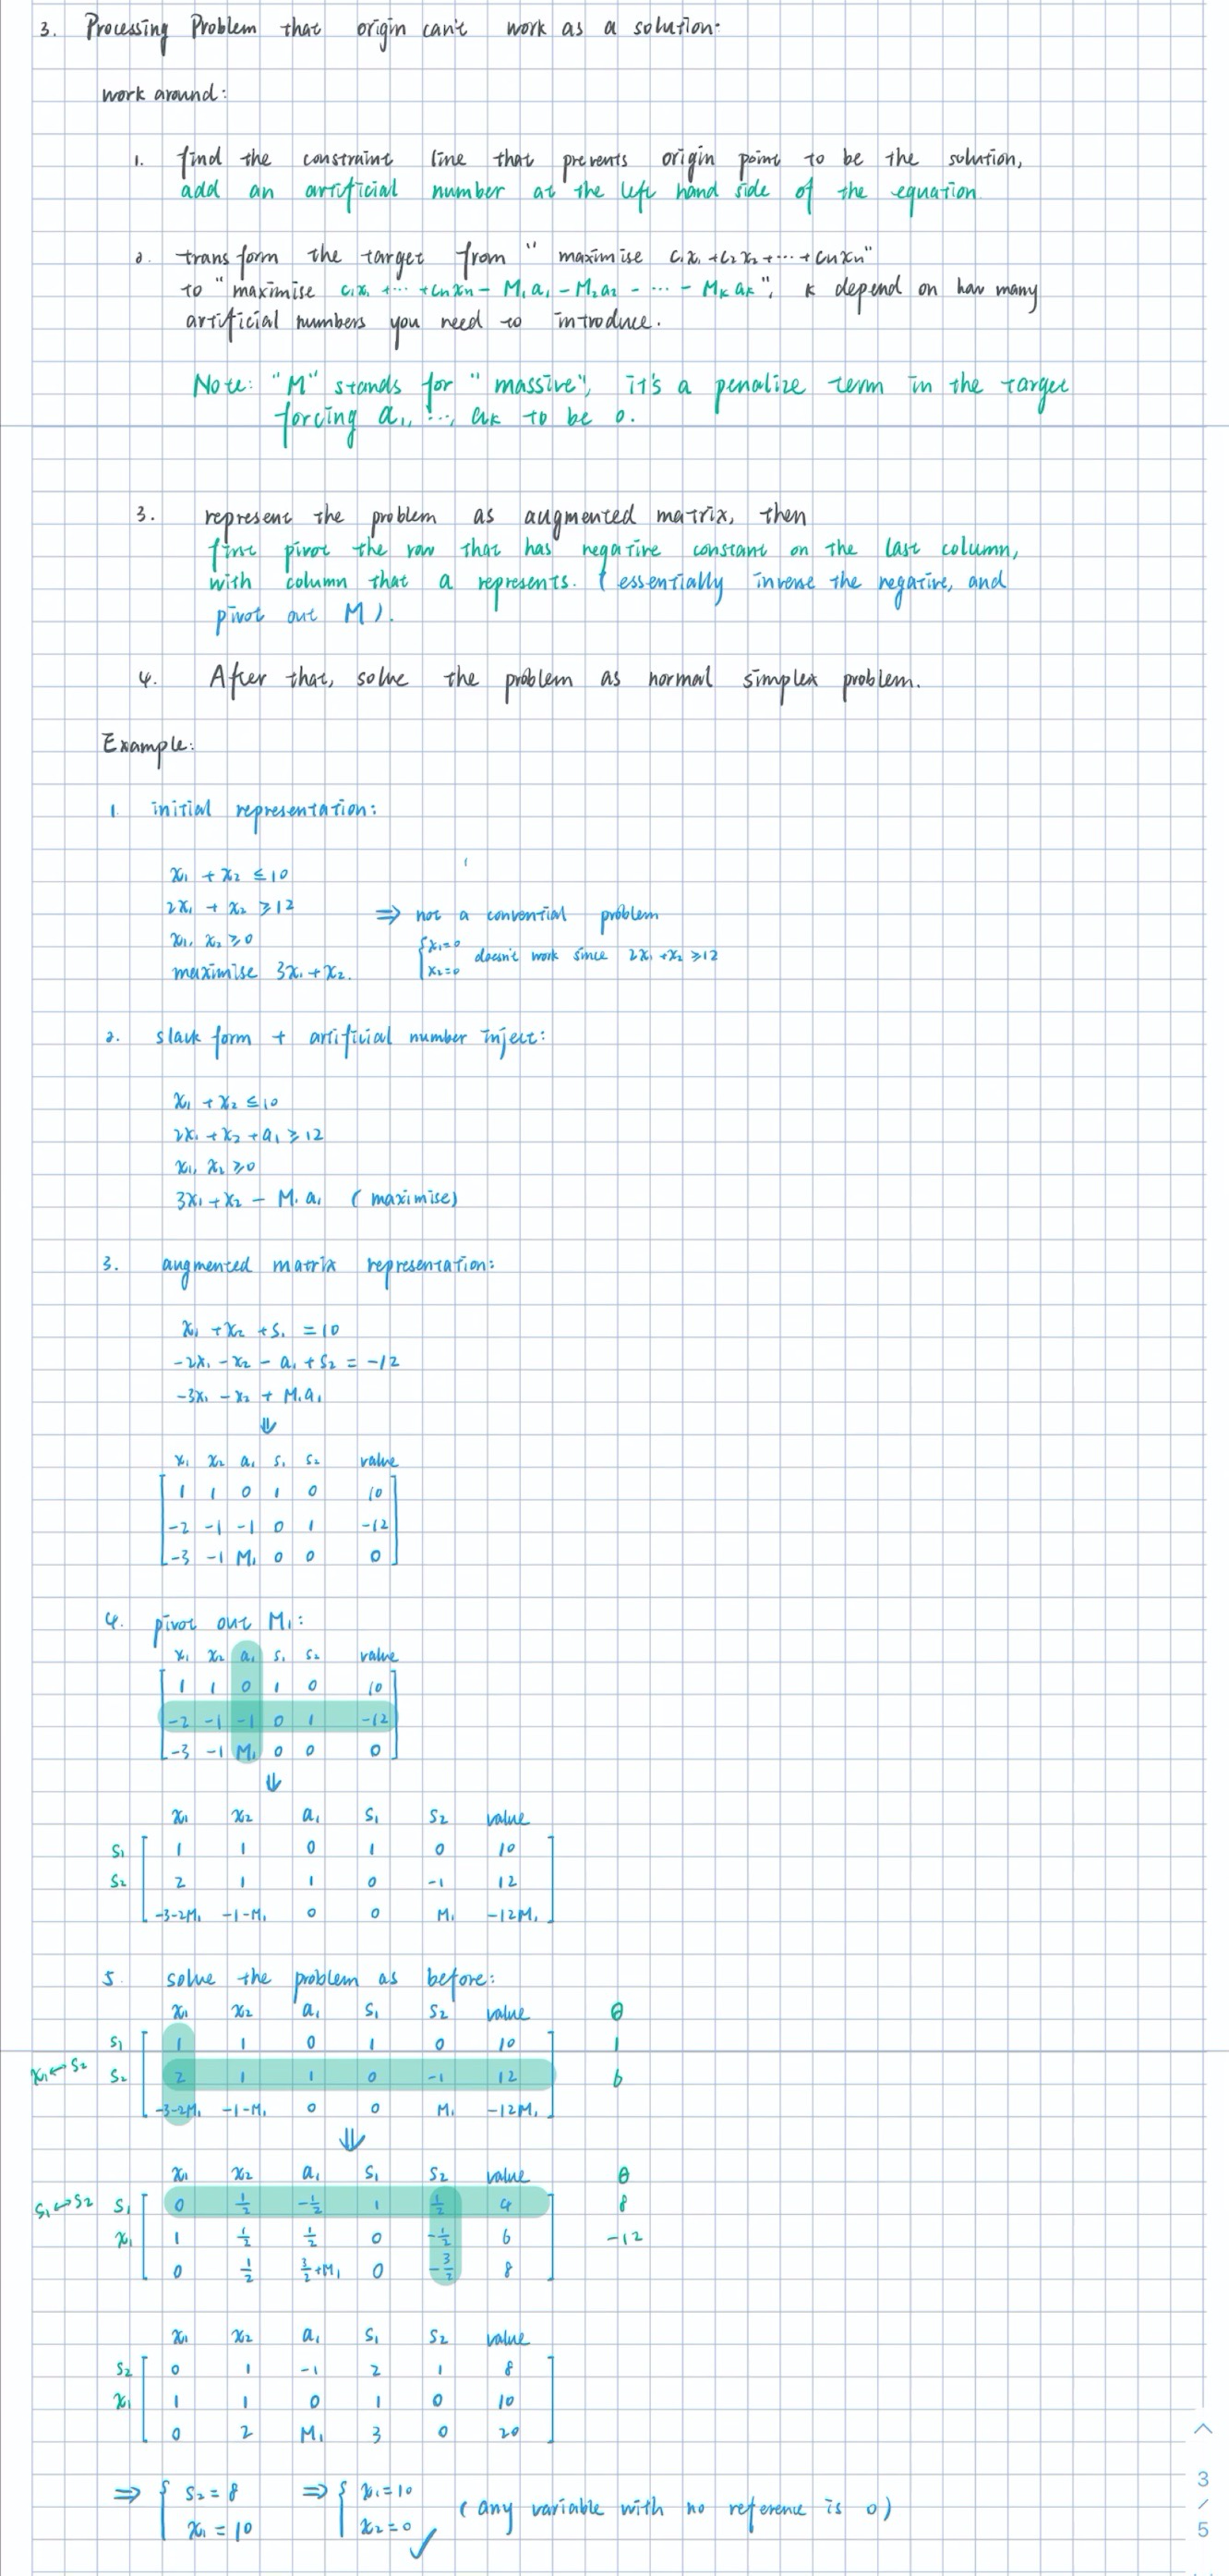 3. Processing Problem that origin can't work as a solution:
work around:
1. find the constraint line that prevents origin point to be the solution,
add an artificial number at the left hand side of the equation.
2. transform the target from "maximise c₁x₁+c₂x₂+⋯+cnxn"
to "maximise c₁x₁+⋯+cnxn-M₁a₁-M₂a₂-⋯-MₖaK", K depend on how many
artificial numbers you need to introduce.
Note: "M" stands for "massive", it's a penalize term in the target
forcing a₁, ..., aK to be 0.
3. represent the problem as augmented matrix, then
first pivot the row that has negative constant on the last column,
with column that a represents. (essentially inverse the negative, and
pivot out M).
4. After that, solve the problem as normal simplex problem.
Example:
1. initial representation:
x₁ + x₂ ≤ 10
2x₁ + x₂ ≥ 12 ⇒ not a convential problem
x₁, x₂ ≥ 0 { x₁=0 doesn't work since 2x₁+x₂ ≥ 12
maximise 3x₁+x₂. x₂=0
2. slack form + artificial number inject:
x₁ + x₂ ≤ 10
2x₁ + x₂ + a₁ ≥ 12
x₁, x₂ ≥ 0
3x₁ + x₂ - M₁a₁ (maximise)
3. augmented matrix representation:
x₁ + x₂ + s₁ = 10
-2x₁ - x₂ - a₁ + s₂ = -12
-3x₁ - x₂ + M₁a₁
⇓
x₁ x₂ a₁ s₁ s₂ value
1 1 0 1 0 10
-2 -1 -1 0 1 -12
-3 -1 M₁ 0 0 0
4. pivot out M₁:
x₁ x₂ a₁ s₁ s₂ value
1 1 0 1 0 10
-2 -1 -1 0 1 -12
-3 -1 M₁ 0 0 0
⇓
x₁ x₂ a₁ s₁ s₂ value
s₁ 1 1 0 1 0 10
s₂ 2 1 1 0 -1 12
-3-2M₁ -1-M₁ 0 0 M₁ -12M₁
5. solve the problem as before:
x₁ x₂ a₁ s₁ s₂ value θ
s₁ 1 1 0 1 0 10 1
x₁↔s₂ s₂ 2 1 1 0 -1 12 6
-3-2M₁ -1-M₁ 0 0 M₁ -12M₁
⇓
x₁ x₂ a₁ s₁ s₂ value θ
s₁↔s₂ s₁ 0 1/2 -1/2 1 1/2 4 8
x₁ 1 1/2 1/2 0 -1/2 6 -12
0 1/2 3/2+M₁ 0 -3/2 8
x₁ x₂ a₁ s₁ s₂ value
s₂ 0 1 -1 2 1 8
x₁ 1 1 0 1 0 10
0 2 M₁ 3 0 20
⇒ { s₂ = 8 ⇒ { x₁=10 (any variable with no reference is 0)
x₁ = 10 x₂=0 ✓
3
/
5